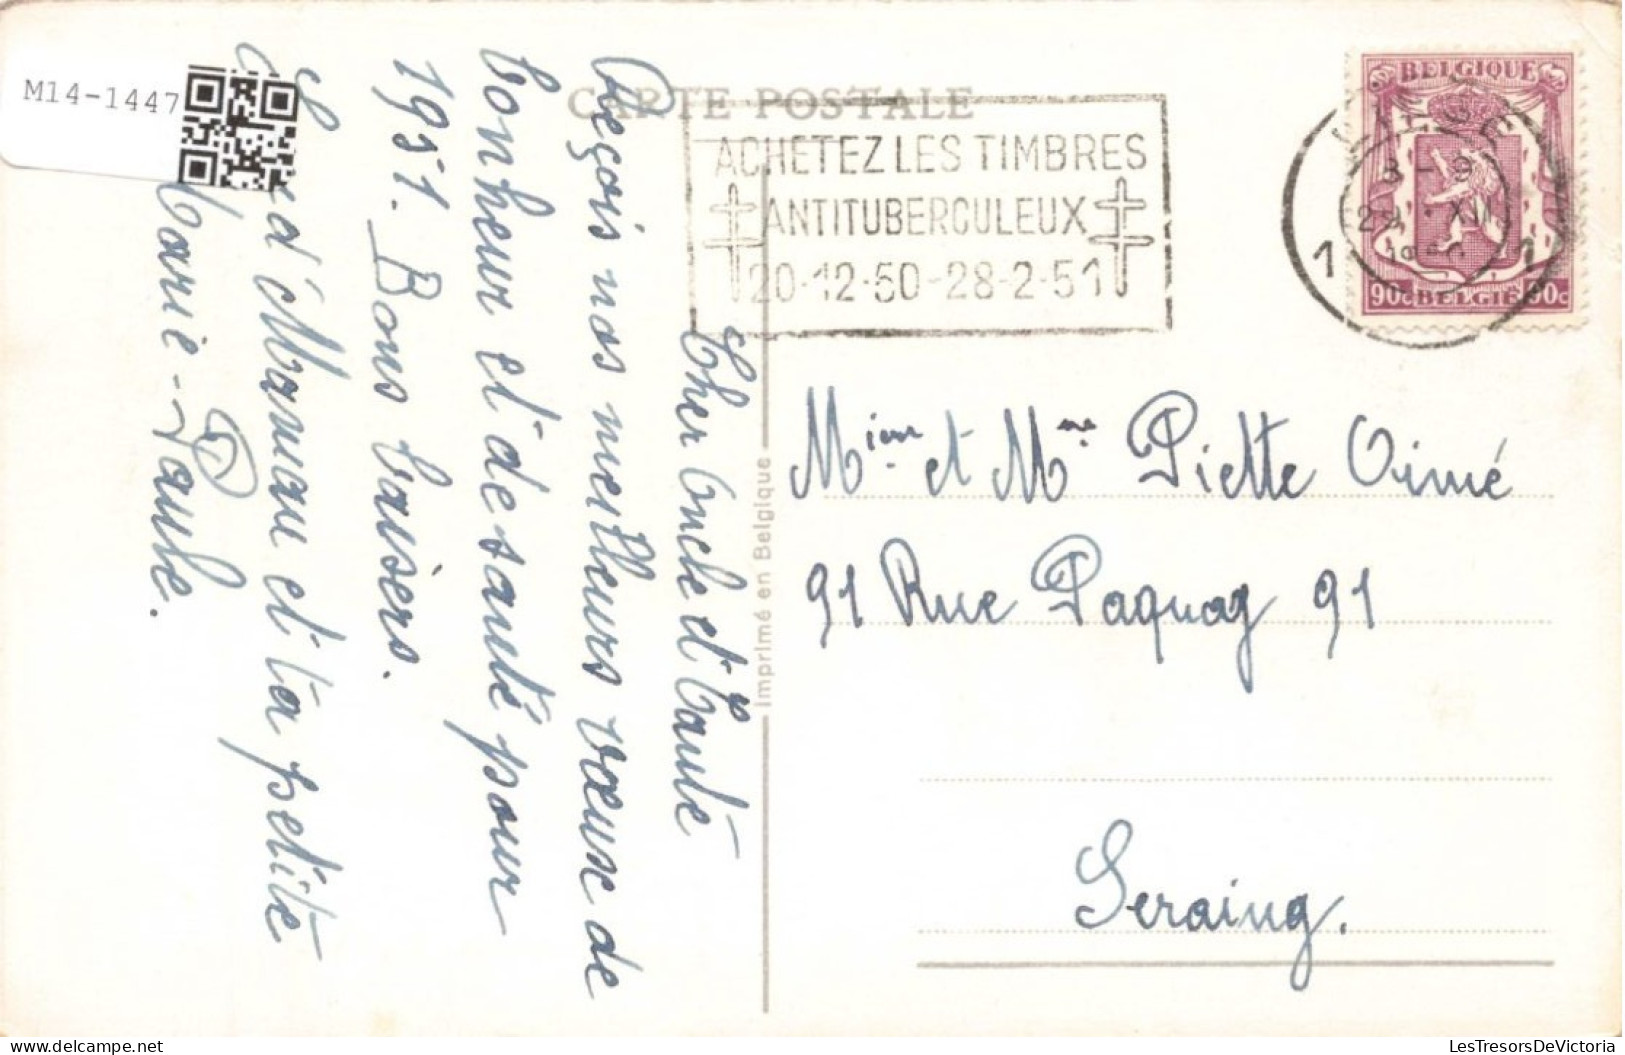 M14-1447
CARTE POSTALE
ACHETEZ LES TIMBRES
ANTITUBERCULEUX
20-12-50-28-2-51
BELGIQUE
90c BELGIË 90c
8-9
1 1
Cher Oncle et Tante
Reçois nos meilleurs vœux de
bonheur et de santé pour
1951. Bons baisers.
et ta petite
Marie-Paule.
Imprimé en Belgique
et Mme Piette Aimé
91 Rue Paquay 91
Seraing.
LesTresorsDeVictoria
www.delcampe.net